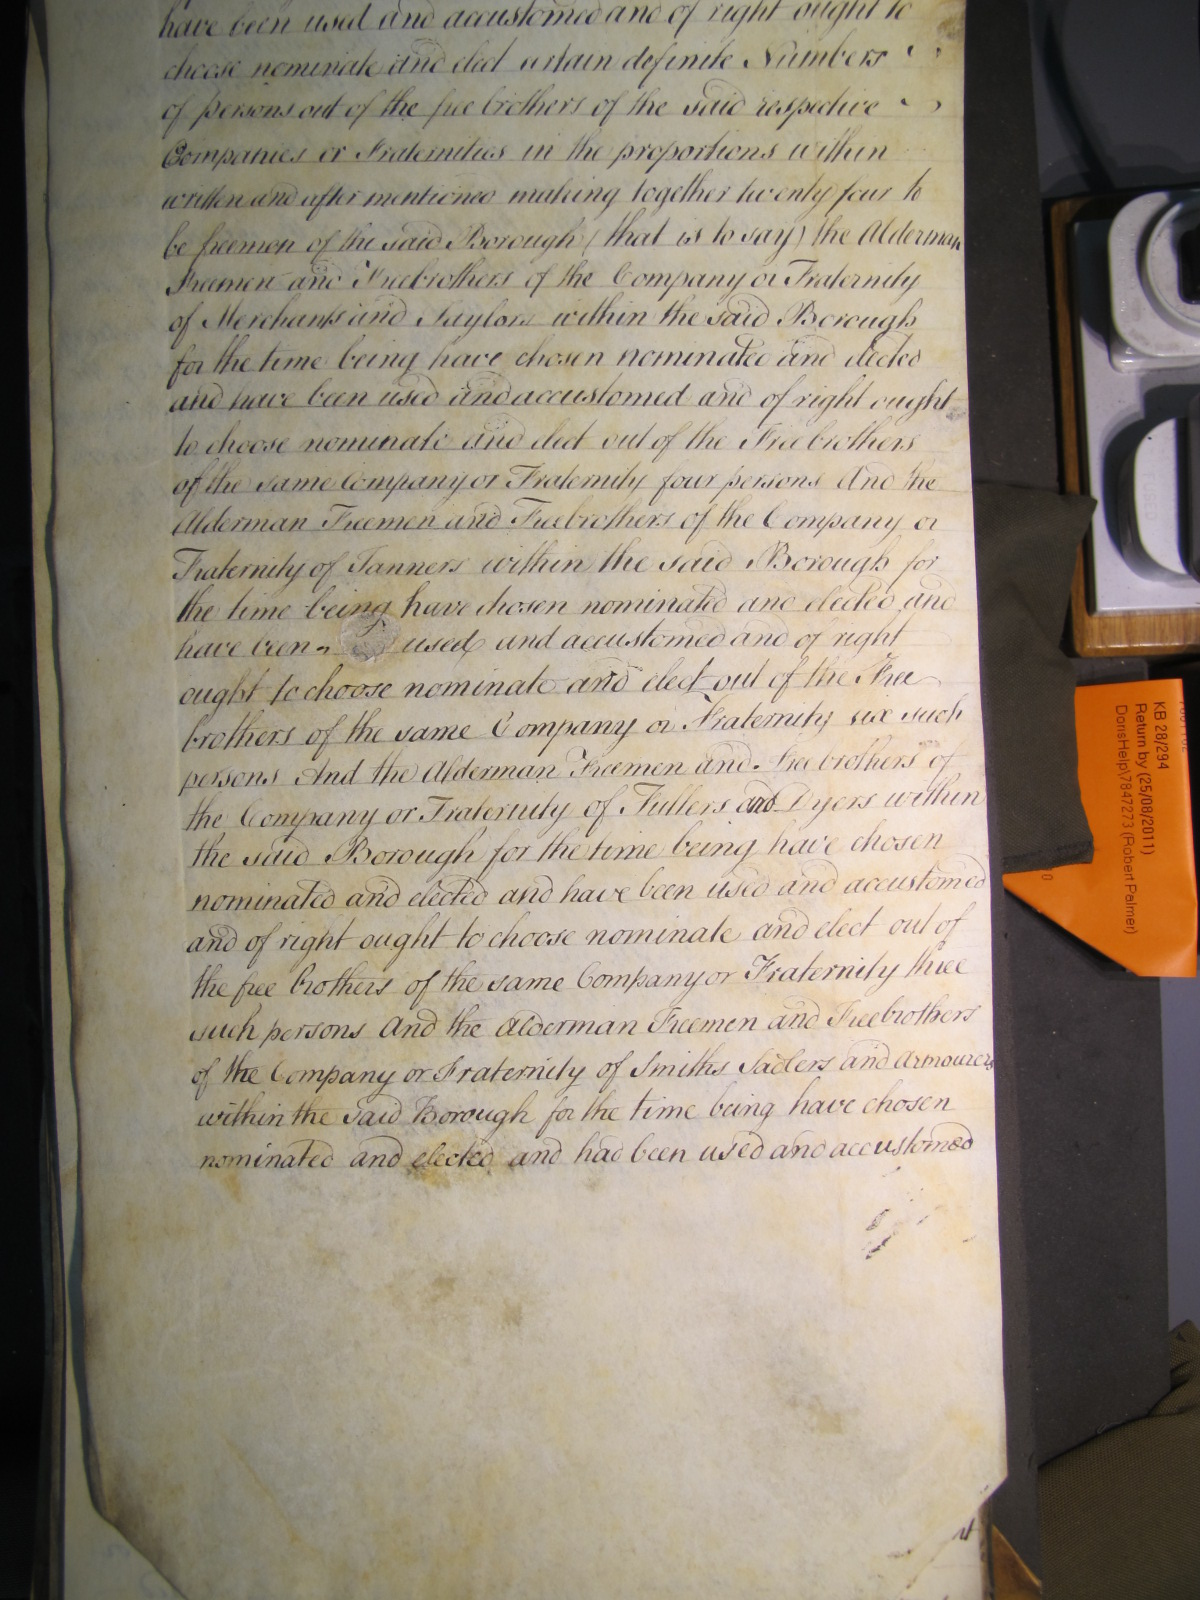 have been used and accustomed and of right ought to
choose nominate and elect certain definite Numbers
of persons out of the free brothers of the said respective
Companies or Fraternities in the proportions within
written and after mentioned making together twenty four to
be freemen of the said Borough (that is to say) the Alderman
Freemen and Freebrothers of the Company or Fraternity
of Merchants and Taylors within the said Borough
for the time being have chosen nominated and elected
and have been used and accustomed and of right ought
to choose nominate and elect out of the Freebrothers
of the same Company or Fraternity four persons And the
Alderman Freemen and Freebrothers of the Company or
Fraternity of Tanners within the said Borough for
the time being have chosen nominated and elected and
have been used and accustomed and of right
ought to choose nominate and elect out of the Free
brothers of the same Company or Fraternity six such
persons And the Alderman Freemen and Freebrothers of
the Company or Fraternity of Fullers and Dyers within
the said Borough for the time being have chosen
nominated and elected and have been used and accustomed
and of right ought to choose nominate and elect out of
the free brothers of the same Company or Fraternity three
such persons And the Alderman Freemen and Freebrothers
of the Company or Fraternity of Smiths Sadlers and Armourers
within the said Borough for the time being have chosen
nominated and elected and had been used and accustomed
KB 28/294
Return by (25/08/2011)
DorisHelp\7847273 (Robert Palmer)